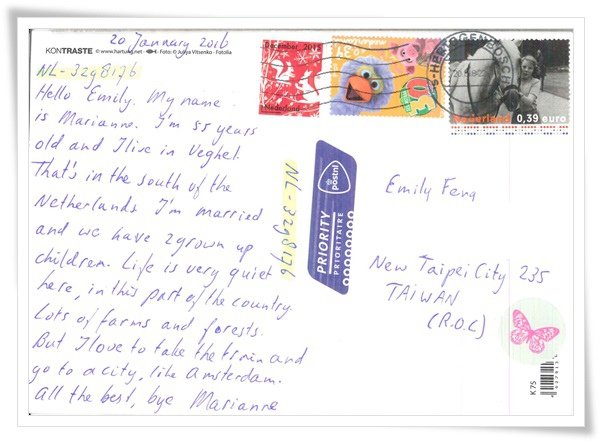 KONTRASTE © www.hartung.net Foto: © Julya Vitsenko - Fotolia
20 January 2016
NL-3298176
Hello Emily. My name
is Marianne. I'm 55 years
old and I live in Veghel.
That's in the south of the
Netherlands. I'm married
and we have 2 grown up
children. Life is very quiet
here, in this part of the country.
Lots of farms and forests.
But I love to take the train and
go to a city, like Amsterdam.
All the best, bye Marianne
NL-3298176
December 2015
Nederland
's-HERTOGENBOSCH
Nederland
0,39 euro
postnl
PRIORITY
PRIORITAIRE
Emily Feng
New Taipei City 235
TAIWAN
(R.O.C)
K 75